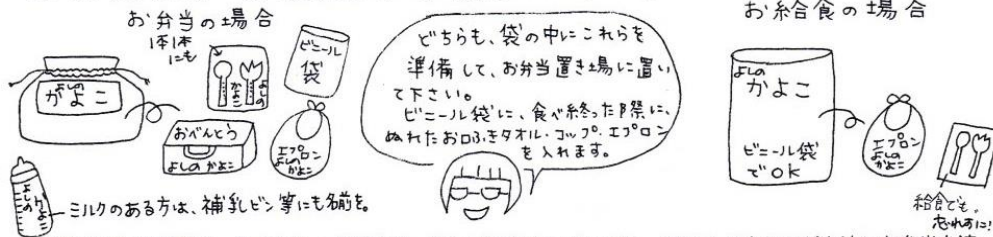 お弁当の場合
1本1本
にも
よしの
かよこ
ビニール
袋
よしの
かよこ
おべんとう
よしの かよこ
エプロン
よしの
かよこ
よしの
かよこ
ミルクのある方は、補乳ビン等にも名前を。
どちらも、袋の中にこれらを
準備して、お弁当置き場に置い
て下さい。
ビニール袋に、食べ終った際に、
ぬれたお口ふきタオル・コップ・エプロン
を入れます。
お給食の場合
よしの
かよこ
ビニール袋
でOK
エプロン
よしの
かよこ
給食でも。
忘れずに!